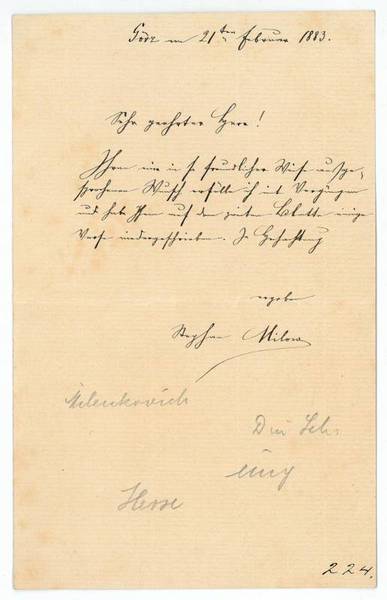 Görz am 21ten Februar 1883.
Sehr geehrter Herr!
Ihren mir in so freundlicher Weise ausge-
sprochenen Wunsch erfülle ich mit Vergnügen
und habe Ihnen auf dem zweiten Blatte einige
Verse niedergeschrieben. In Hochachtung
ergeben
Stephan Milow
Milenkovich
Herse
224.